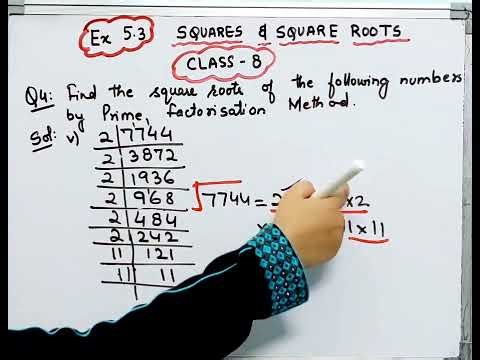 Ex 5.3 SQUARES & SQUARE ROOTS
CLASS - 8
Q4: Find the square roots of the following numbers
by Prime factorisation Method.
Sol: v)
2 | 7744
2 | 3872
2 | 1936
2 | 968
2 | 484
2 | 242
11 | 121
11 | 11
1
√7744 = 2 × 2
× 1 × 11